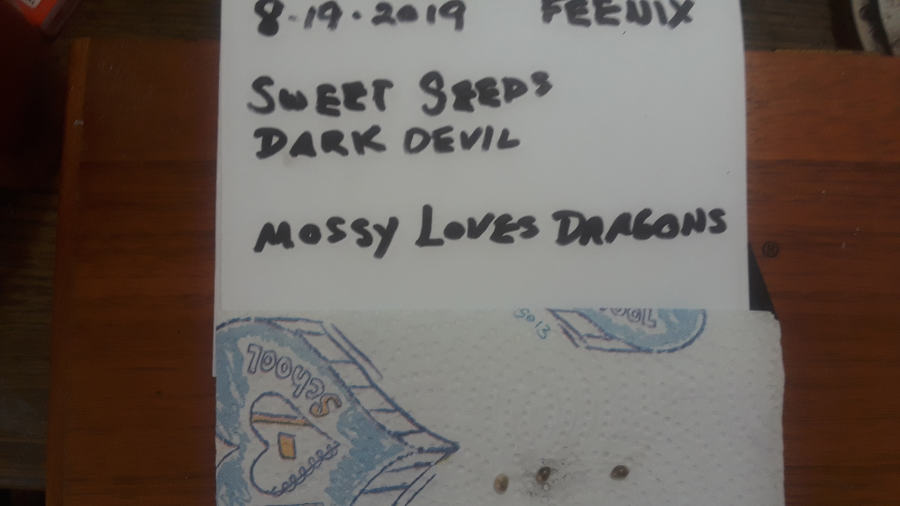 8-19-2019 FEENIX
SWEET SEEDS
DARK DEVIL
MOSSY LOVES DRAGONS
®
School